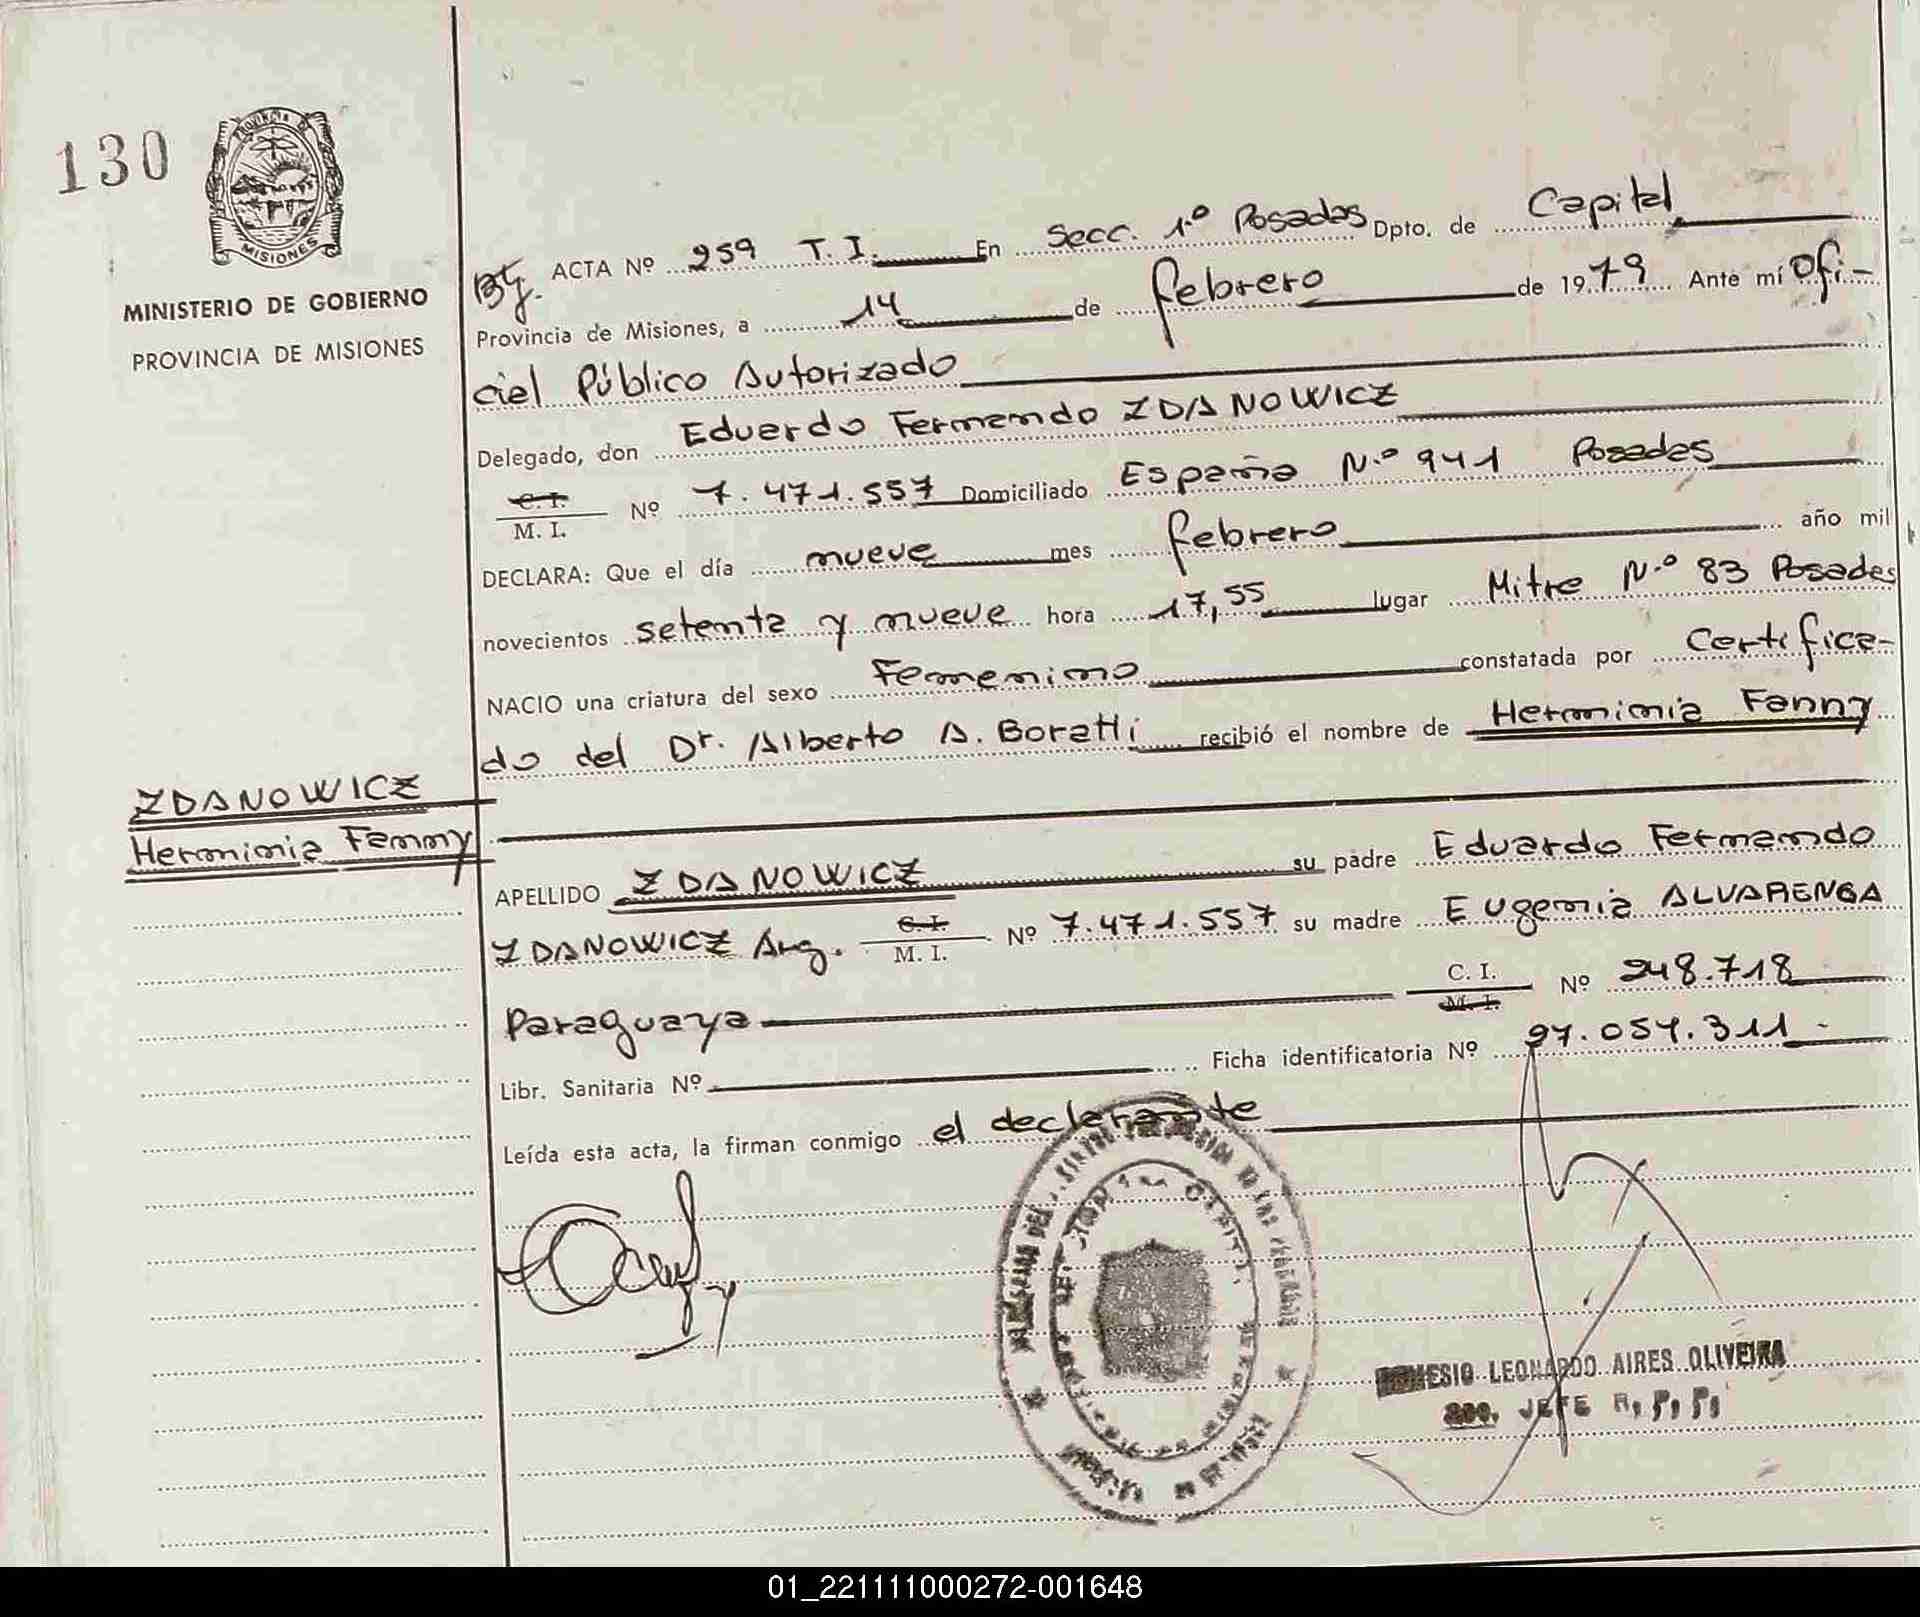 130
PROVINCIA DE
MISIONES
MINISTERIO DE GOBIERNO
PROVINCIA DE MISIONES
ACTA Nº 259 T. I. En Secc. 1º Posadas Dpto. de Capital
Provincia de Misiones, a 14 de febrero de 1979 Ante mí Ofi-
cial Público Autorizado
Delegado, don Eduardo Fernando ZDANOWICZ
C. I.
M. I. Nº 7.471.557 Domiciliado España N.º 941 Posadas
DECLARA: Que el día nueve mes febrero año mil
novecientos setenta y nueve hora 17,55 lugar Mitre N.º 83 Posadas
NACIO una criatura del sexo Femenino constatada por Certifica-
do del Dr. Alberto A. Boratti recibió el nombre de Herminia Fanny
ZDANOWICZ
Herminia Fanny
APELLIDO ZDANOWICZ su padre Eduardo Fernando
ZDANOWICZ Arg. C. I.
M. I. Nº 7.471.557 su madre Eugenia ALVARENGA
Paraguaya C. I.
M. I. Nº 248.718
Libr. Sanitaria Nº Ficha identificatoria Nº 27.054.311.-
Leída esta acta, la firman conmigo el declarante
LEONARDO AIRES OLIVEIRA
JEFE R. P. P.
01_221111000272-001648